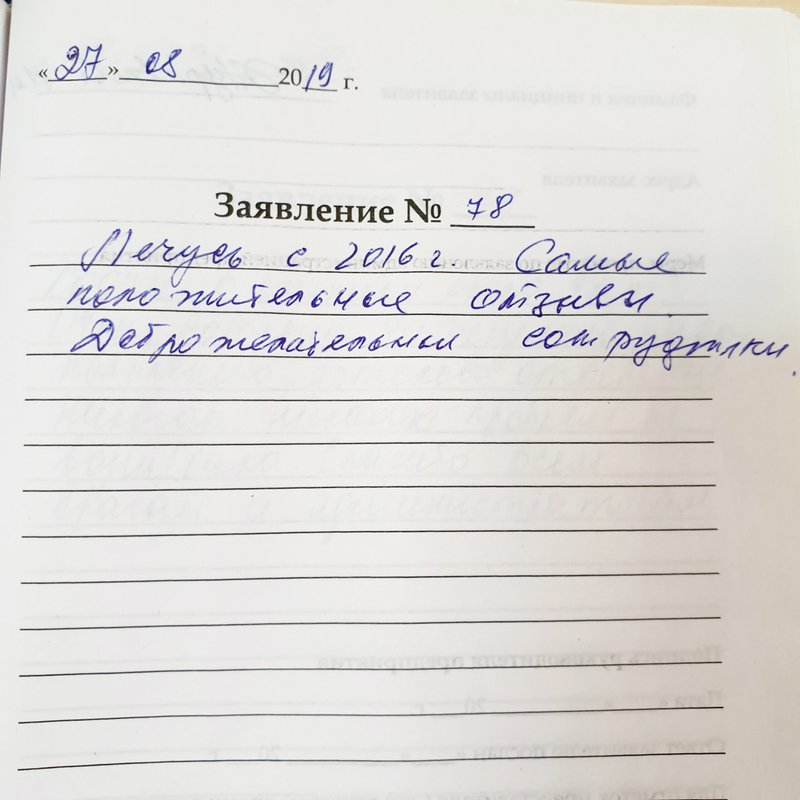 «27» 08 2019 г.
Заявление № 78
Лечусь с 2016 г. Самые
положительные отзывы.
Доброжелательные сотрудники.